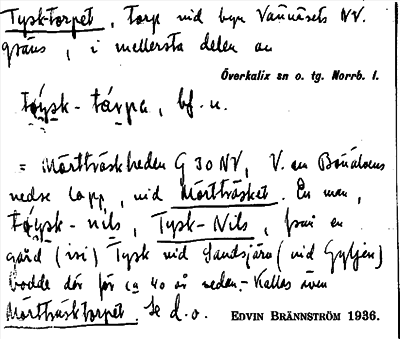 Tysktorpet, torp vid byn Vännäsets NV.
gräns, i mellersta delen av
Överkalix sn o. tg. Norrb. l.
tóysk-tårpa, bf. n.
= Mörtträskheden G 30 NV, V. om Bönälvens
nedre lopp, vid Mörtträsket. En man,
tóysk-nils, Tysk-Nils, från en
gård (is) Tysk vid Landsjärv (vid Gyljen)
bodde där för ca 40 år sedan.- Kallas även
Mörtträsktorpet. Se d.o.
EDVIN BRÄNNSTRÖM 1936.